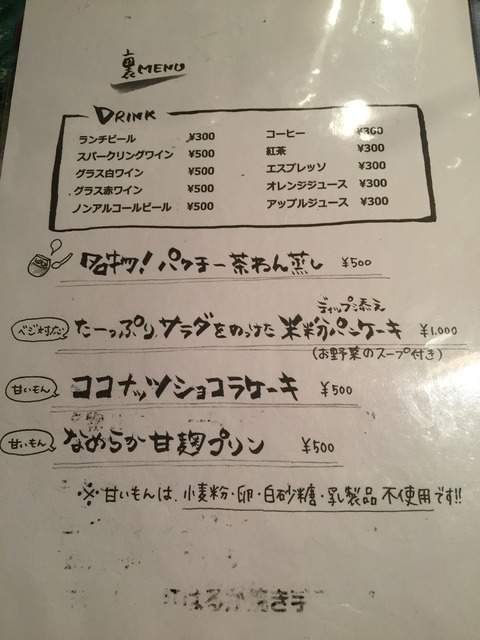 裏MENU
DRINK
ランチビール ¥300
スパークリングワイン ¥500
グラス白ワイン ¥500
グラス赤ワイン ¥500
ノンアルコールビール ¥500
コーヒー ¥300
紅茶 ¥300
エスプレッソ ¥300
オレンジジュース ¥300
アップルジュース ¥300
名物! パクチー茶わん蒸し ¥500
ディップ添え
ベジ村だい たーっぷりサラダをのっけた米粉パンケーキ ¥1,000
(お野菜のスープ付き)
甘いもん ココナッツショコラケーキ ¥500
甘いもん なめらか甘麹プリン ¥500
※甘いもんは、小麦粉・卵・白砂糖・乳製品不使用です!!